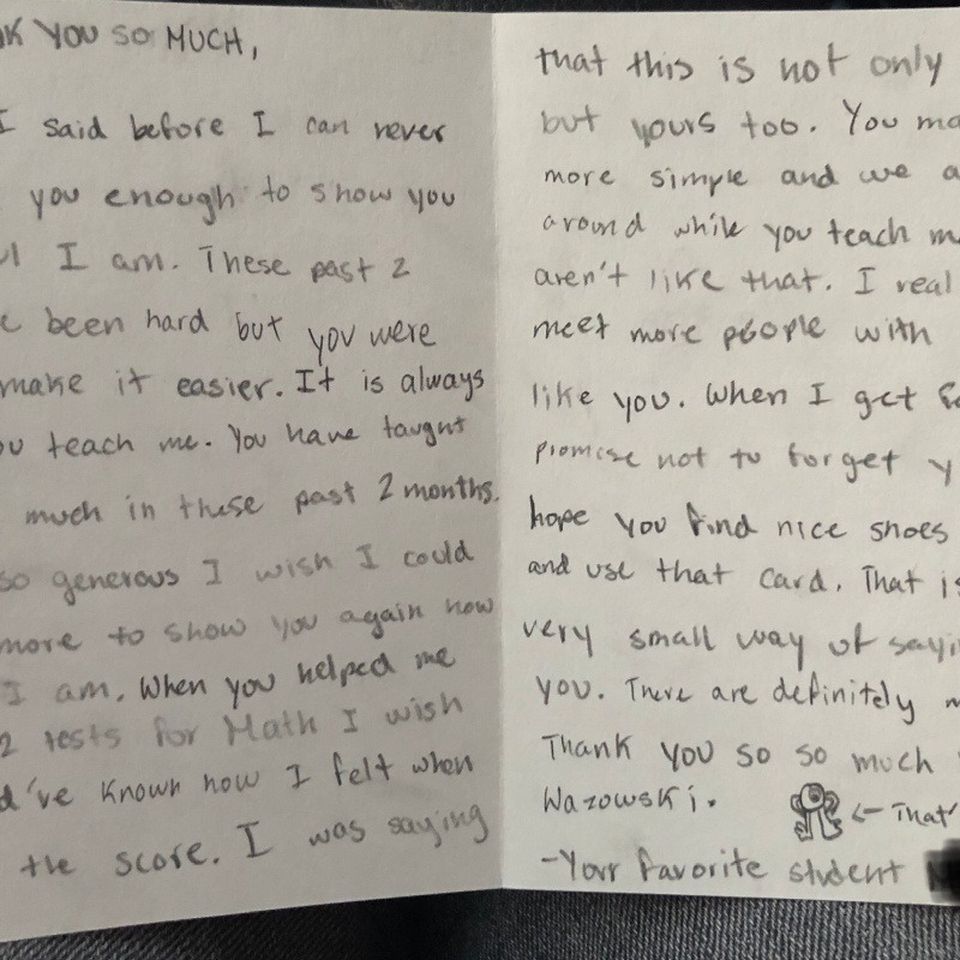 YOU SO MUCH,
I said before I can never
you enough to show you
I am. These past 2
been hard but you were
make it easier. It is always
teach me. You have taught
much in these past 2 months.
so generous I wish I could
more to show you again how
I am. When you helped me
2 tests for Math I wish
known how I felt when
the score. I was saying
that this is not only
but yours too. You
more simple and we
around while you teach
aren't like that. I
meet more people with
like you. When I get
promise not to forget
hope you find nice shoes
and use that card. That
very small way of
you. There are definitely
Thank you so so much
Wazowski.
←
-Your favorite student